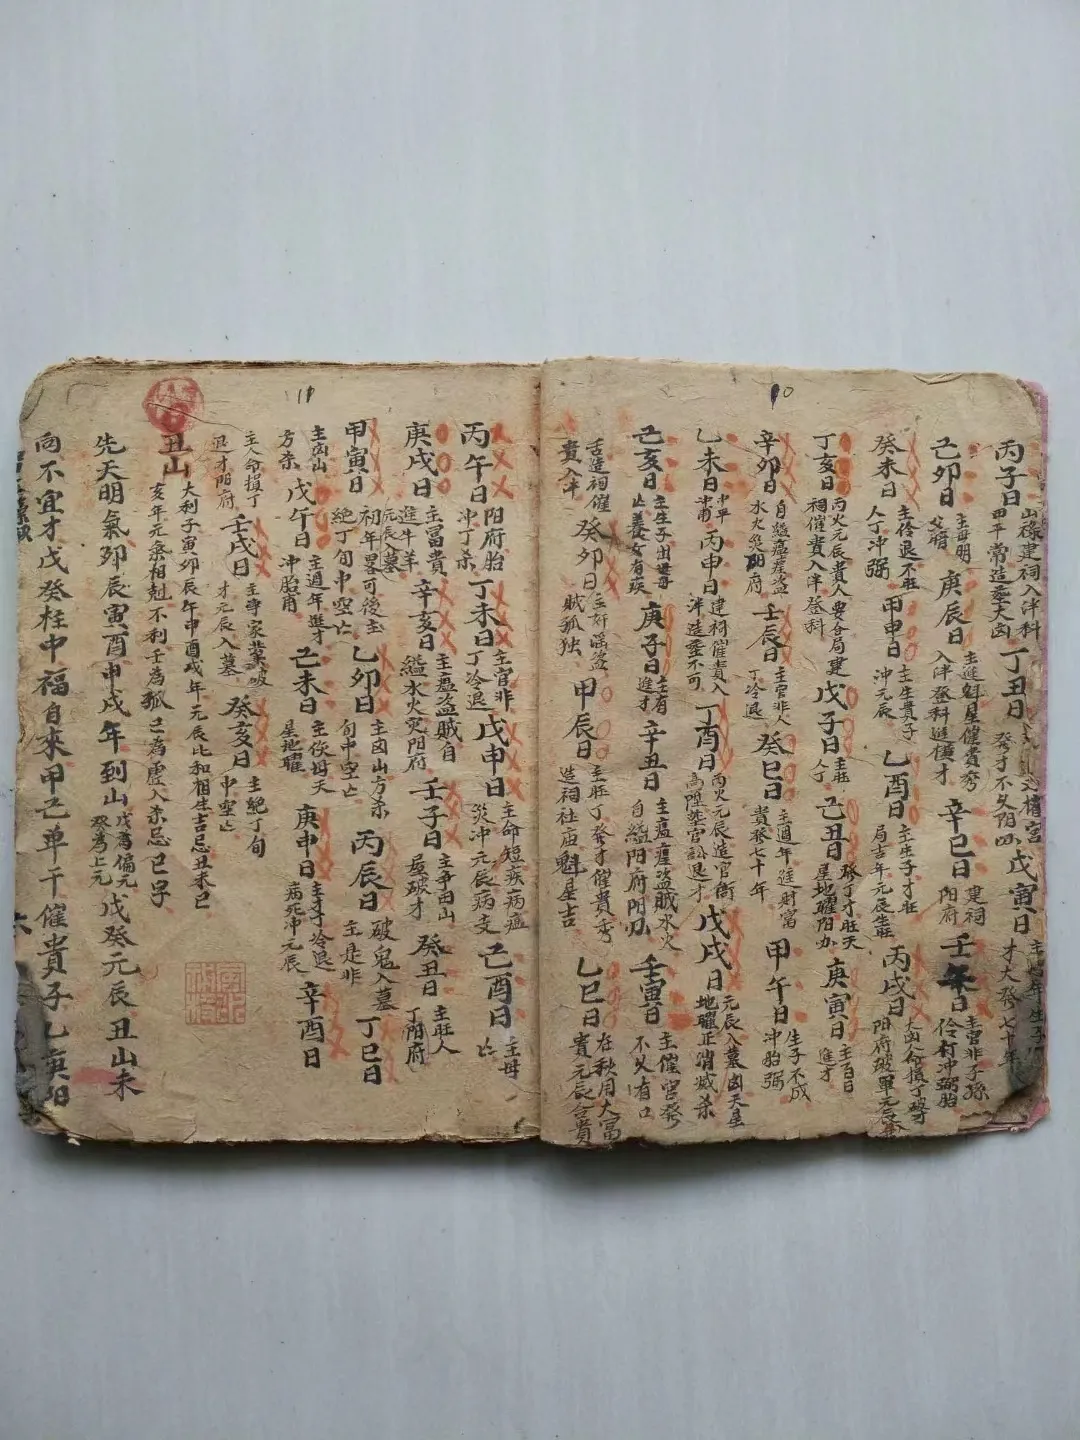 10
丙子日 山祿建祠入泮科 田平常造葬大凶 丁丑日 發才不久阳 戊寅日 才大發七十年
己卯日 主母明 庚辰日 主進魁星催貴秀 入泮登科進横才 辛巳日 建祠 阳府 壬午日 主官非子孫 伶仃冲弼胎
癸未日 主伶退不旺 人丁冲弼 甲申日 主生貴子 冲元辰 乙酉日 主生子才旺 局吉年元辰生旺 丙戌日 大凶人命損丁破才 阳府破單元辰
丁亥日 丙火元辰貴人要合局建 祠催貴入泮登科 戊子日 主旺 人丁 己丑日 發丁才旺天 星地曜阳刃 庚寅日 主百日 進才
辛卯日 自縊瘟瘟盗 水火災阳府 壬辰日 主官非人 丁冷退 癸巳日 主週年進財富 貴發七十年 甲午日 生子不成 冲胎弼
乙未日 丙申日 建祠催貴入 泮造葬不可 丁酉日 丙火元辰造官衙 高陞墓宫訟退才 戊戌日 元辰入墓凶天星 地曜正消滅杀
己亥日 主生子出母 养女有疾 庚子日 主有 進才 辛丑日 主瘟瘟盗賊水火 自縊阳府阳刃 壬寅日 主催官發 不久有口
舌造祠催 貴入泮 癸卯日 主奸淫盗 賊孤独 甲辰日 主旺丁發才催貴秀 造祠社庙魁星吉 乙巳日 在秋月大富 貴元辰合貴
11
丙午日 阳府胎 冲丁杀 丁未日 主官非 丁冷退 戊申日 主命短疾病瘟 災冲元辰病支 己酉日 主母
庚戌日 主富貴 進牛羊 元辰墓 辛亥日 主瘟盗賊自 縊水火災阳府 壬子日 主争田山 屋破才 癸丑日 主旺人 丁阳府
甲寅日 初年畧可後主 絶丁旬中空亡 乙卯日 主凶山方杀 旬中空亡 丙辰日 破鬼入墓 主是非 丁巳日
主凶山 方杀 戊午日 主週年進才 冲胎角 己未日 主伤母天 星地曜 庚申日 主丁才冷退 病死冲元辰 辛酉日
主人命損丁 退才阳府 壬戌日 主辱家業破 才元辰入墓 癸亥日 主絶丁旬 中空亡
丑山 大利子寅卯辰午申酉戌年元辰比和相生吉忌丑未巳 亥年元辰相剋不利壬為孤己為虚入杀忌巳字
先天明氣卯辰寅酉申戌年到山 戊為偏元 癸為上元 戊癸元辰丑山未
向不宜才戊癸柱中福自来甲己单干催貴子乙庚阳